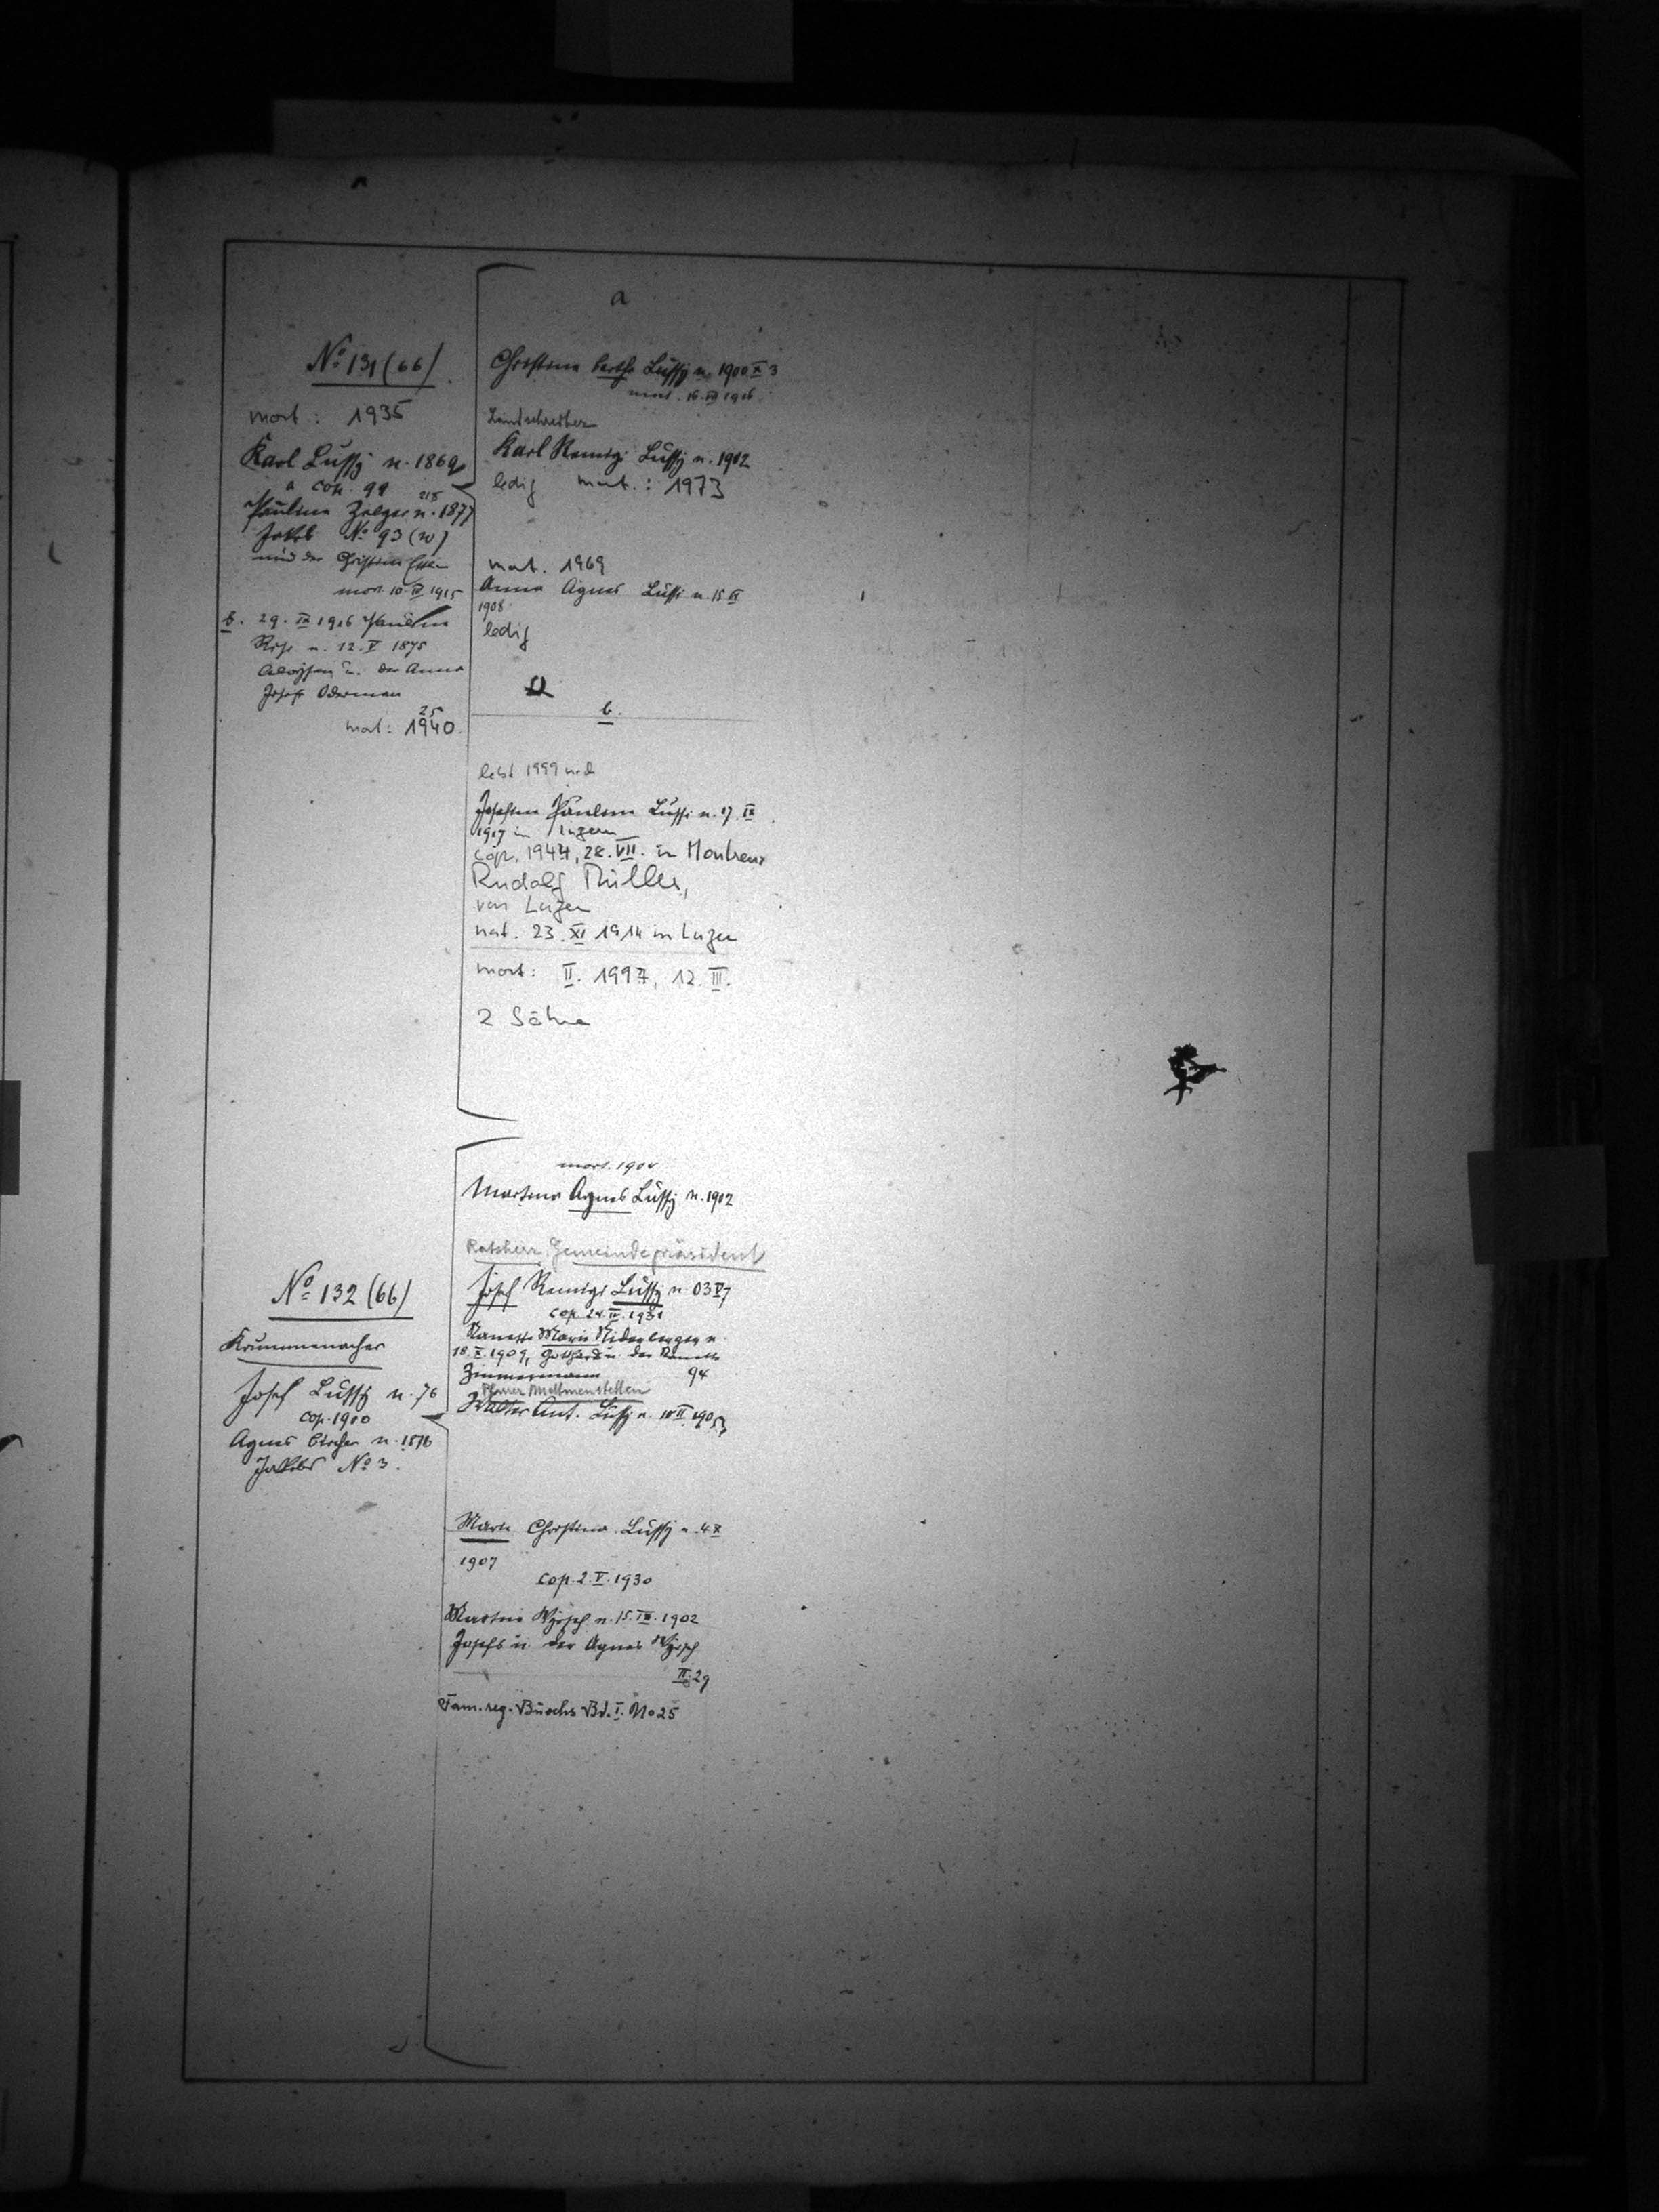 No 131 (66)
mort: 1935
Karl Lussy n. 1869
a cop. 99
Paulina Zelger n. 1877
Jakob No 93 (w)
und der Christina
mort 10. 1915
b. 29. IX 1916 Paulina
n. 12. V 1875
Aloysen u. der Anna
Josefa Odermatt
25
mort: 1940
a
Christina Bertha Lussy n. 1900 X 3
mort. 16. 1916
Landschreiber
Karl Remigi Lussy n. 1902
ledig mort.: 1973
mort. 1969
Anna Agnes Lussi n. 15
1908
ledig
b.
lebt 1999 noch
Josefina Paulina Lussi n. 17. IX
1917 in Luzern
cop. 1944, 28. VII. in Montreux
Rudolf Müller,
von Luzern
nat. 23. XI 1914 in Luzern
mort: II. 1997, 12. III.
2 Söhne
mort. 1904
Martina Agnes Lussy n. 1902
Ratsherr, Gemeindepräsident
No 132 (66)
Krummenacher
Josef Lussy n. 76
cop. 1900
Agnes Bircher n. 1876
Jakobs No 3.
Josef Remigi Lussy n. 03 V 7
cop. 24. II. 1931
Nanette Marie Niderberger n.
18. X. 1909, Gotthards u. der Nanette
Zimmermann 94
Pfarrer Mettmenstetten
Walter Ant. Lussy n. 18 II 1905
Marie Christina Lussy n. 4 X
1907
cop. 2. V. 1930
Martin Wyrsch n. 15. IX. 1902
Josefs u. der Agnes Wyrsch
II 29
Fam. reg. Buochs Bd. I. No 25